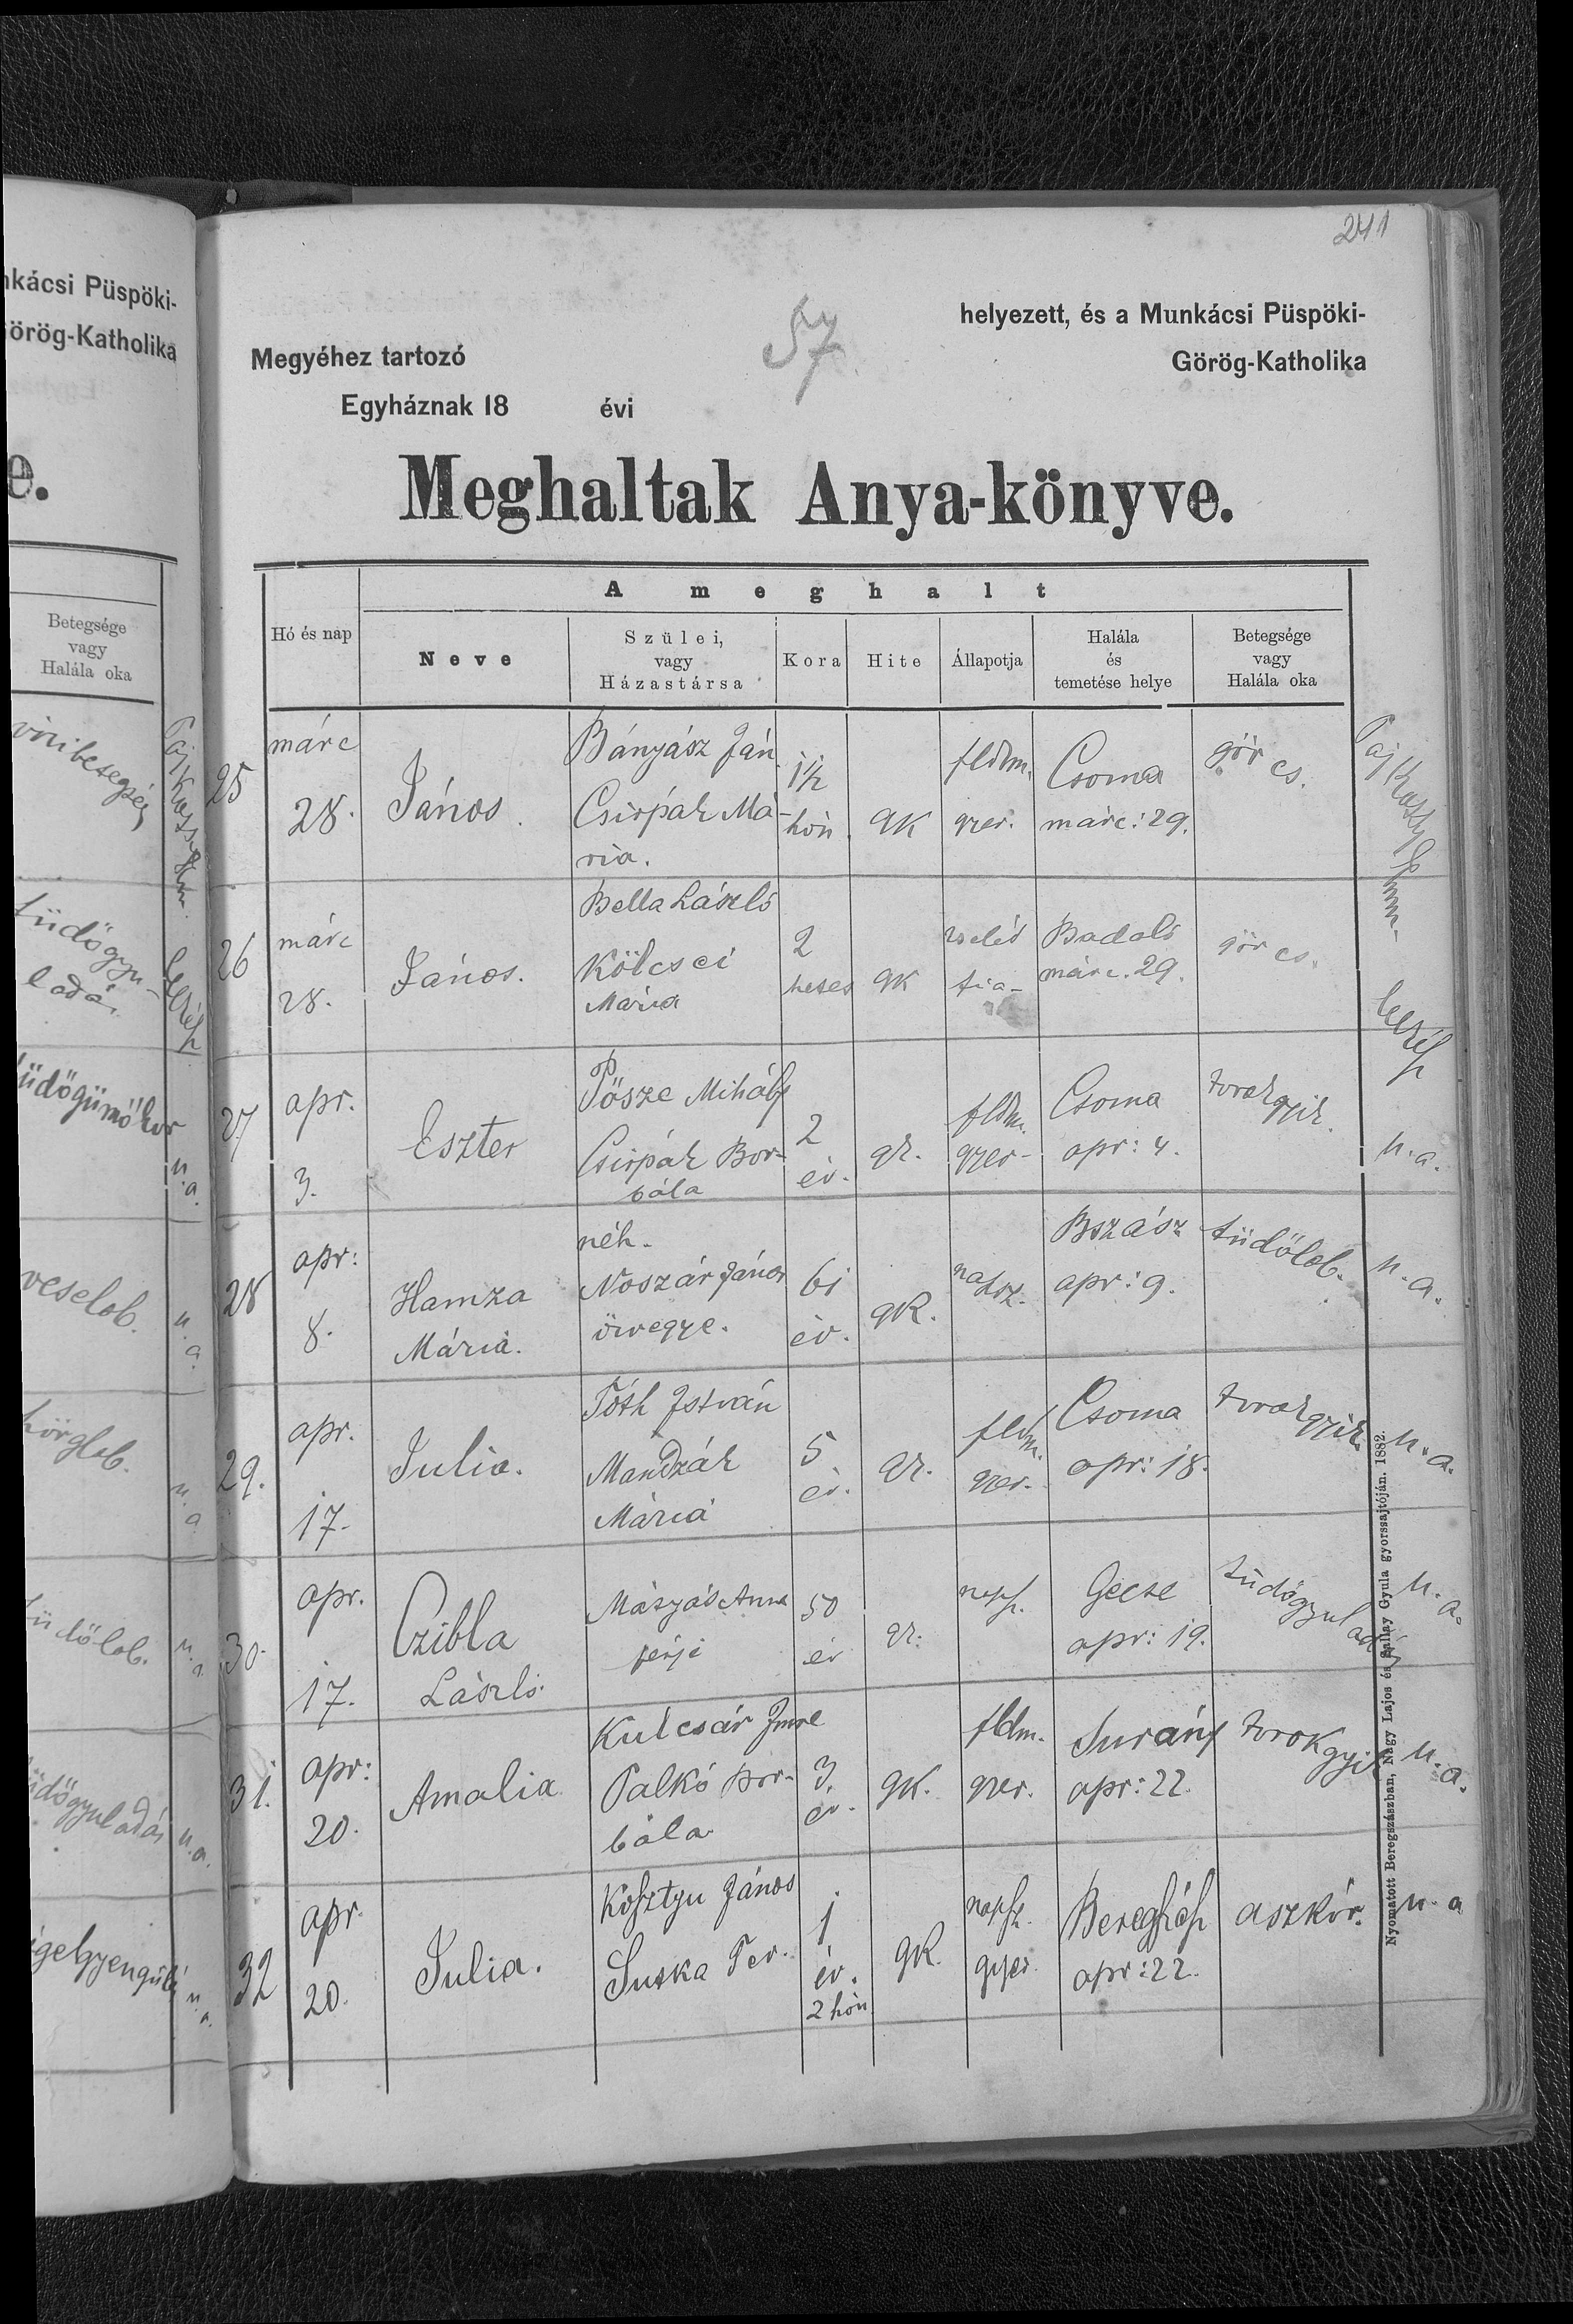 241
57
helyezett, és a Munkácsi Püspöki-
Megyéhez tartozó
Görög-Katholika
Egyháznak 18 évi
Meghaltak Anya-könyve.
A meghalt
Hó és nap
Neve
Szülei,
vagy
Házastársa
Kora
Hite
Állapotja
Halála
és
temetése helye
Betegsége
vagy
Halála oka
25
márc
28.
János.
Bányász Ján.
Csirpák Má-
ria.
1½
hón.
gk
fldm.
gyer.
Csoma
márc: 29.
gör cs.
26
márc
28.
János.
Bella László
Kölcsei
Mária
2
hetes
gk
cseléd
fia-
Badaló
márc. 29.
gör cs.
27
apr.
3.
Eszter
Pősze Mihály
Csirpák Bor-
bála
2
év.
gk.
fldm.
gyer-
Csoma
apr: 4.
torokgyik.
u.a.
28
apr:
8.
Hamza
Mária.
néh.
Noszár János
özvegye.
61
év.
gk.
napsz.
Bszász
apr: 9.
tüdőlob.
u.a.
29.
apr.
17.
Julia.
Tóth István
Mandzák
Mária
5
év.
gk.
fldm.
gyer.
Csoma
apr: 18.
torokgyik.
u.a.
30.
apr.
17.
Czibla
László.
Mátyás Anna
férje
50
év
gk.
napsz.
Gecse
apr: 19.
tüdőgyuladás
u.a.
31.
apr:
20.
Amalia
Kulcsár Imre
Palkó Bor-
bála
3.
év.
gk.
fldm.
gyer.
Surány
apr: 22.
torokgyik
u.a.
32
apr.
20.
Julia.
Kosztyu János
Suska Ter.
1
év.
2 hón
gk.
napsz.
gyer.
Beregkész
apr: 22.
aszkór.
u.a
Nyomatott Beregszászban, Nagy Lajos és Kállay Gyula gyorssajtóján. 1882.
nkácsi Püspöki-
örög-Katholika
e.
Betegsége
vagy
Halála oka
tüdőgyu-
ladás
tüdőgümőkor
u.a.
veselob.
u.a.
hörglob.
u.a
tüdőlob.
u.a.
tüdőgyuladás
u.a.
u.a.